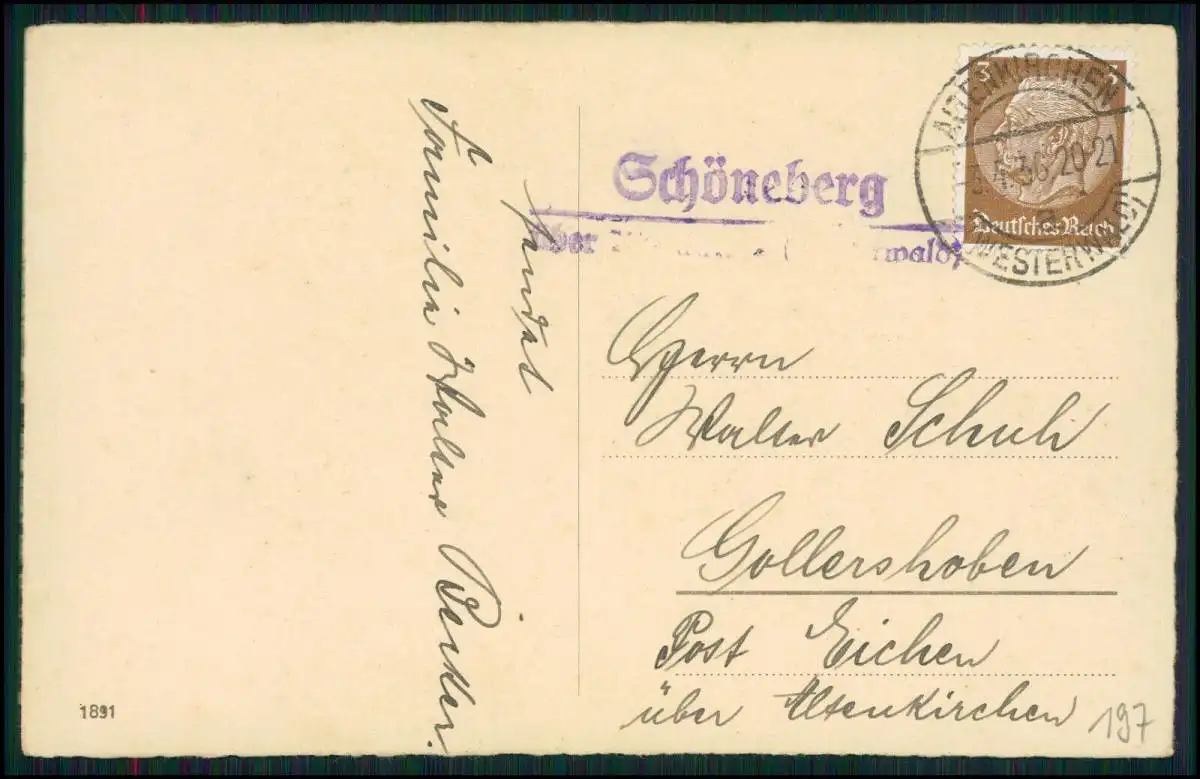 sendet
Familie Walter Bender.
1891
Schöneberg
über
3 3
Deutsches Reich
ALTENKIRCHEN
4.36.20-21
a
(WESTERWALD)
Herrn
Walter Schuh
Gollershoben
Post Eichen
über Altenkirchen
197